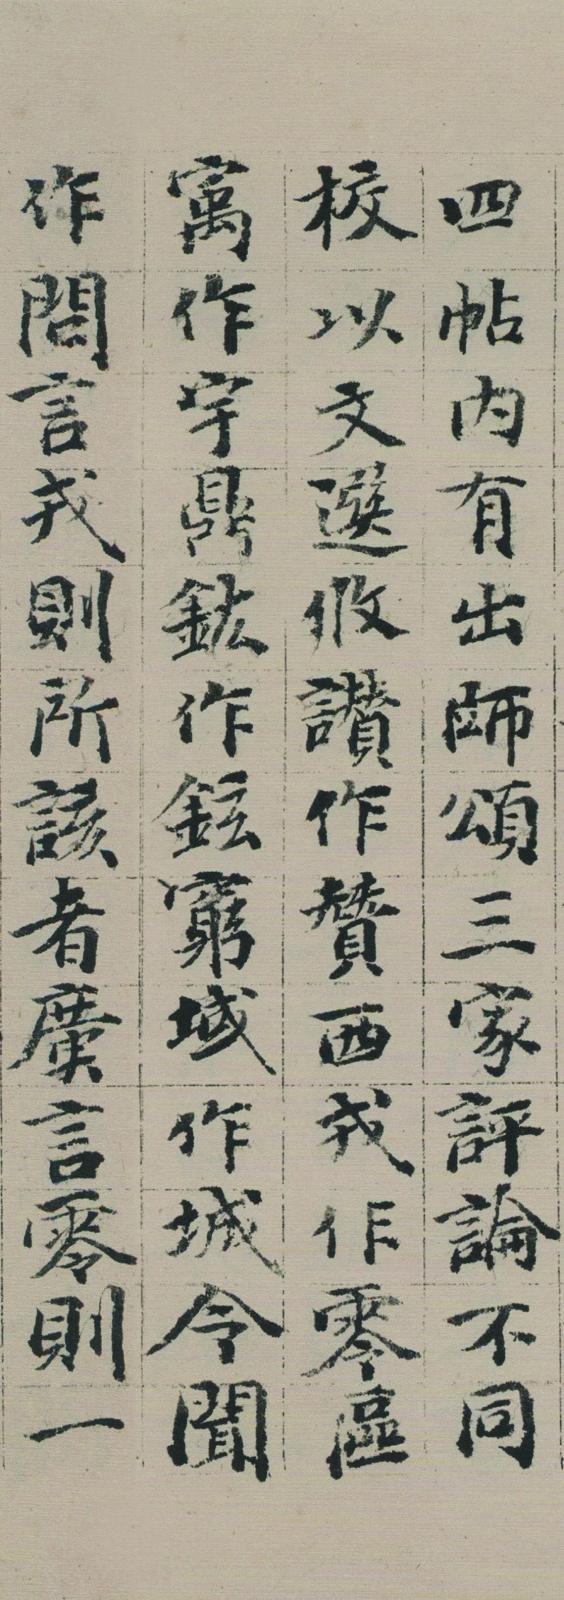 四帖内有出師頌三家評論不同
校以文選攸讃作賛西戎作零區
寓作宇鼎鈜作鉉窮域作城令聞
作問言戎則所該者廣言零則一